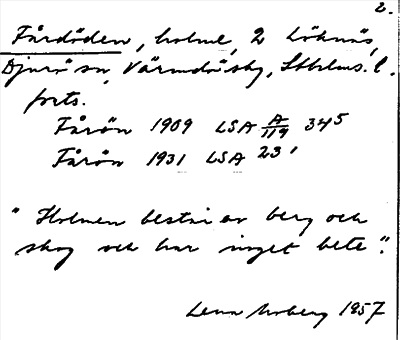 2.
Fårdöden, holme, 2 Löknäs,
Djurö sn, Värmdö skg, Sthlms l.
forts.
Fårön 1909 LSA A/119 345
Fårön 1931 LSA 231
"Holmen består av berg och
skog och har inget bete".
Lena Moberg 1957